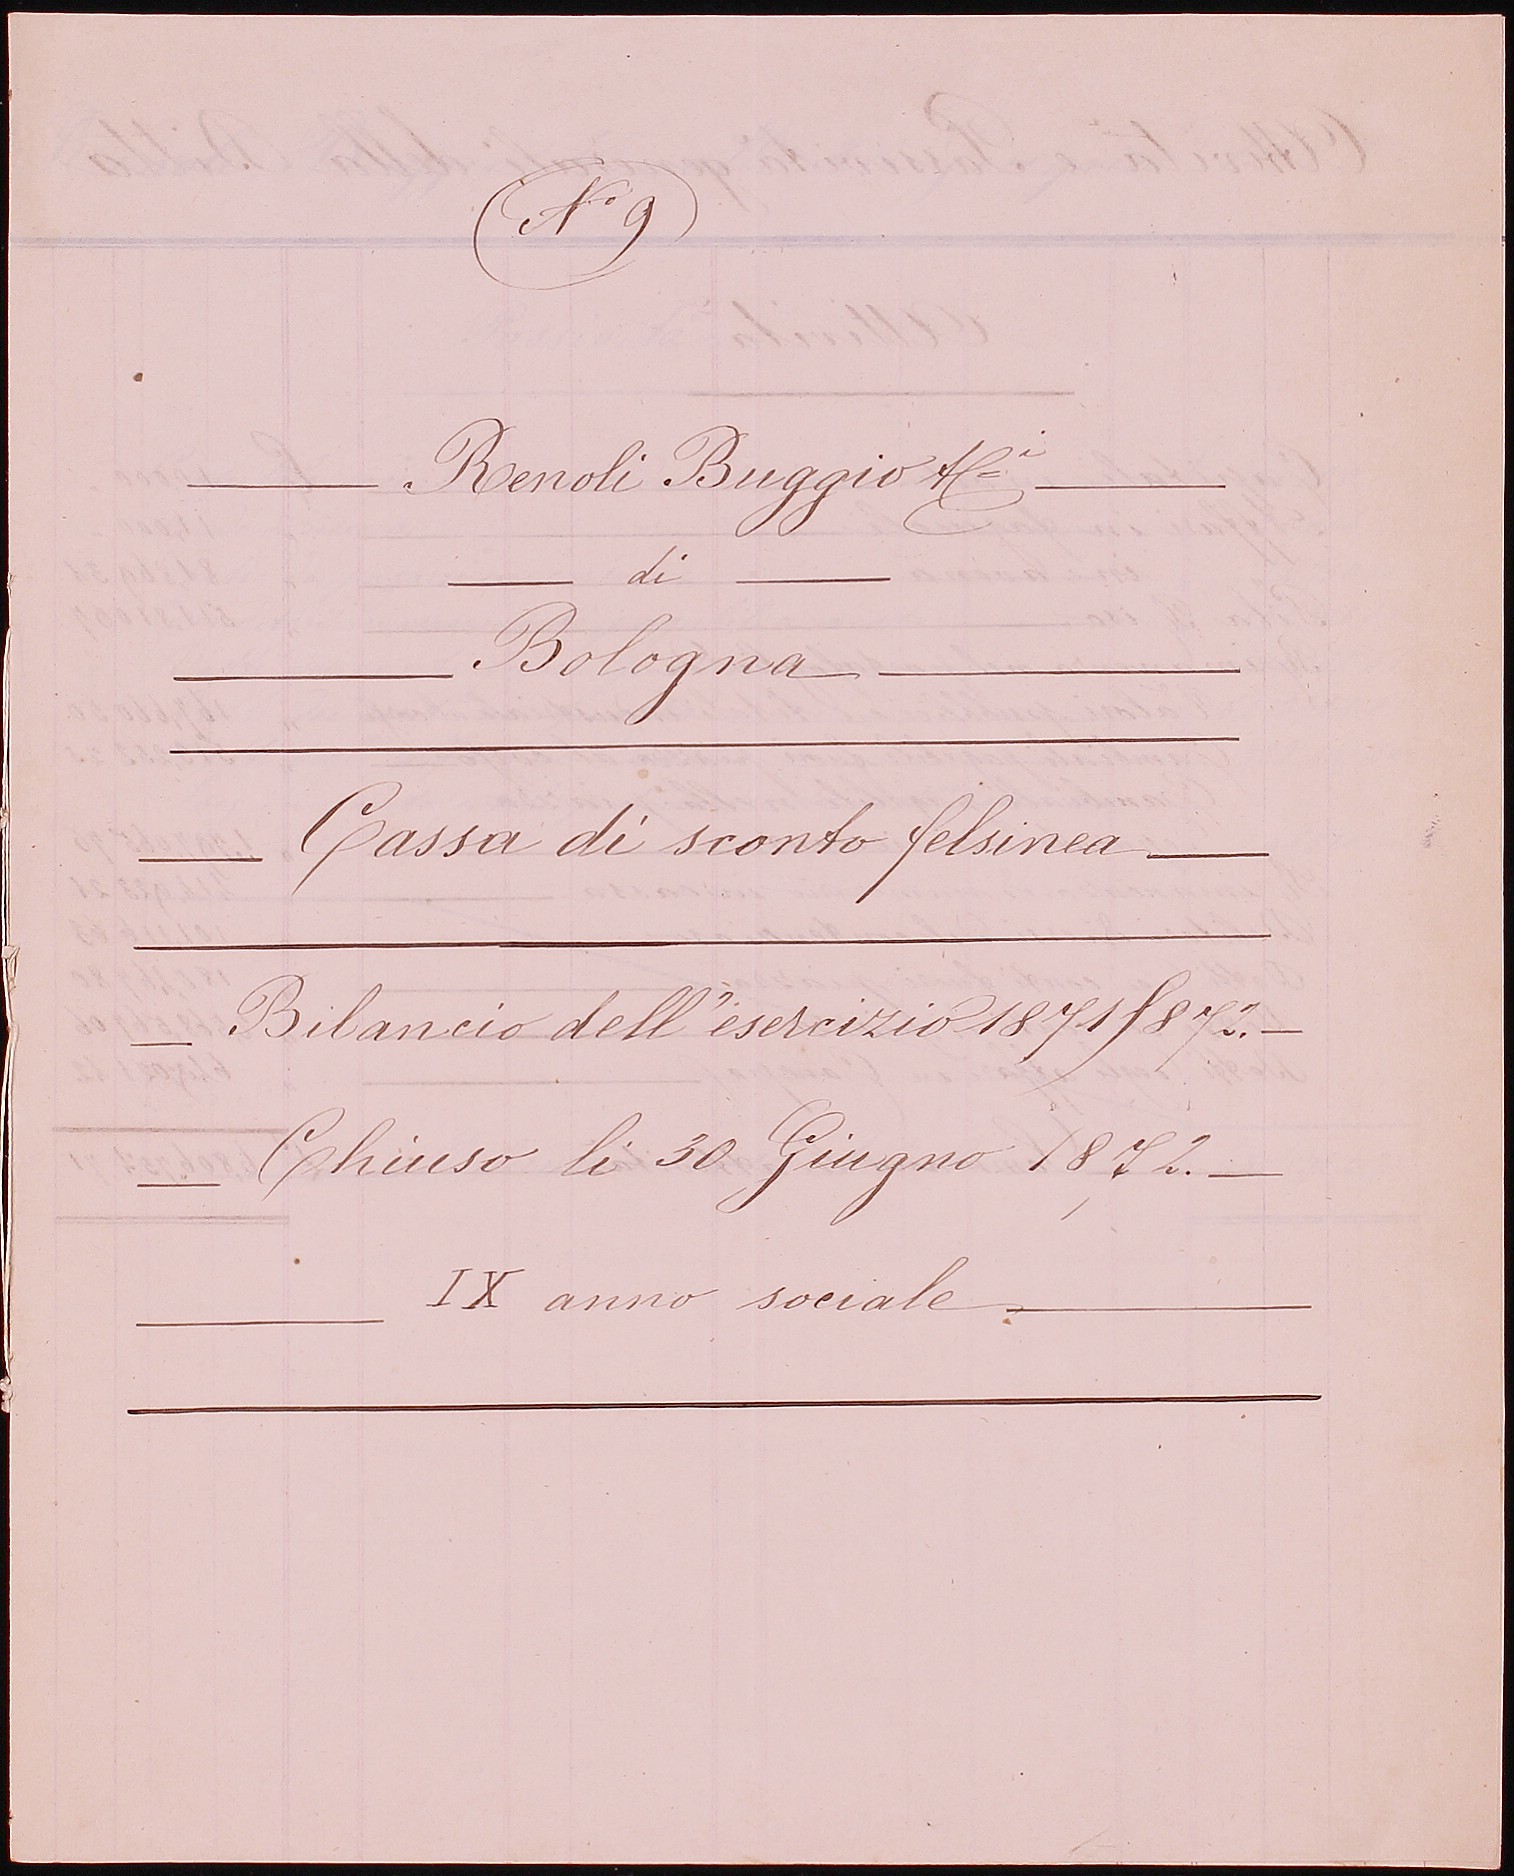 N° 9
Renoli Buggio &C.i
di
Bologna
Cassa di sconto felsinea
Bilancio dell'esercizio 1871/872.
Chiuso li 30 Giugno 1872.
IX anno sociale